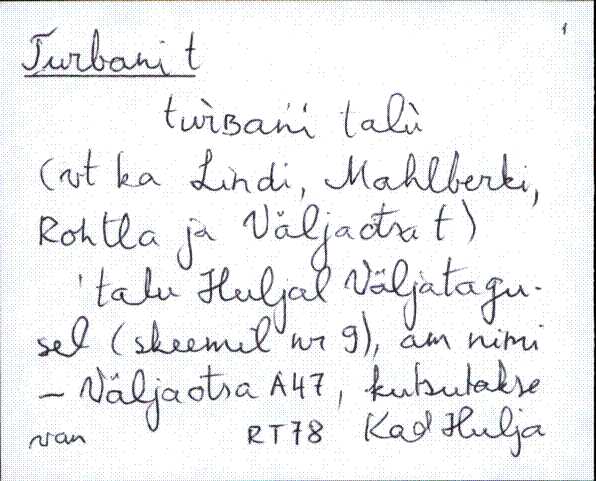 1
Turbani t
tùrʙani talù
(vt ka Lindi, Mahlberki,
Rohtla ja Väljaotsa t)
'talu Huljal Väljatagu-
sel (skeemil nr 9), am nimi
– Väljaotsa A47, kutsutakse
van RT78 Kad Hulja